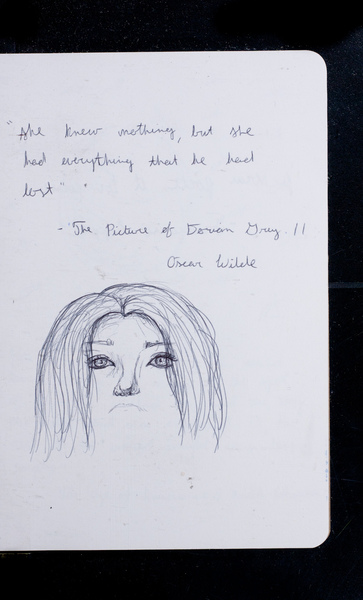 "She knew nothing, but she
had everything that he had
lost"
- "The Picture of Dorian Gray. //
Oscar Wilde